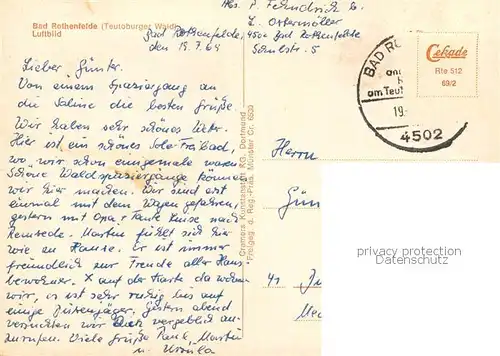 Bad Rothenfelde (Teutoburger Wald)
Luftbild
Abs. P. Fehndrich b.
L. Ostermöller
4506 Bad Rothenfelde
Schulstr. 5
Bad Rothenfelde,
den 19.7.69
Lieber Günter.
Von einem Spaziergang an
die Saline die besten Grüße.
Wir haben sehr schönes Wetter.
Hier ist ein schönes Sole-Freibad,
wo wir schon einigemale waren.
Schöne Waldspaziergänge können
wir hier machen. Wir sind erst
einmal mit dem Wagen gefahren,
gestern mit Opa + Tante Luise nach
Remsede. Martin fühlt sich hier
wie zu Hause. Er ist immer
freundlich zur Freude aller Haus-
bewohner. X auf der Karte da wohnen
wir, es ist sehr ruhig bis auf
einige Düsenjäger. Gestern abend
versuchten wir Dich vergeblich an-
zurufen. Viele Grüße Tante, Martin
u. Ursula
Cramers Kunstanstalt KG, Dortmund
Freigeg. d. Reg.-Präs. Münster Nr.
Cekade
Rte 512
69/2
BAD RO
am Teut
19.
4502
Herrn
Gün
41
privacy protection
Datenschutz